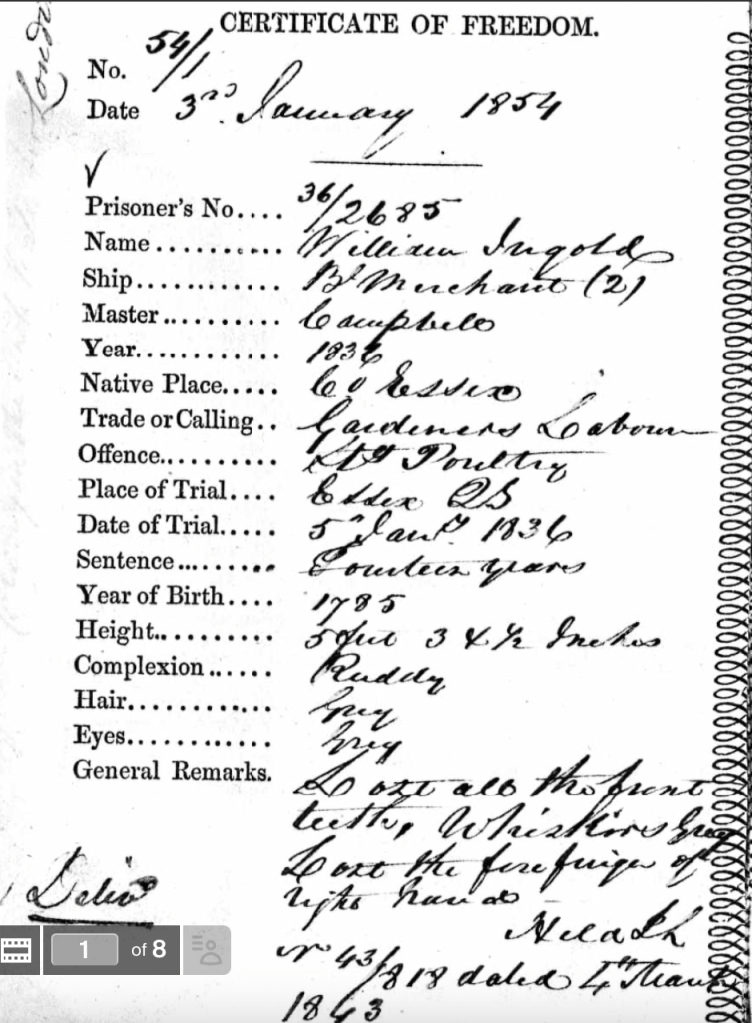 CERTIFICATE OF FREEDOM.
No. 54/1
Date 3rd January 1854
Prisoner's No.... 36/2685
Name........... William Ingold
Ship............ Bt Merchant (2)
Master.......... Campbell
Year............ 1836
Native Place..... Co Essex
Trade or Calling.. Gardeners Labourer
Offence.......... Stg Poultry
Place of Trial.... Essex QS
Date of Trial..... 5 Jany 1836
Sentence......... Fourteen years
Year of Birth.... 1785
Height.......... 5 feet 3 & ½ Inches
Complexion...... Ruddy
Hair............ Grey
Eyes............ Grey
General Remarks. Lost all the front
teeth, Whiskers Grey
Lost the fore finger of
right hand
Held TL
No 43/818 dated 4th March
1843
Delivd
1 of 8